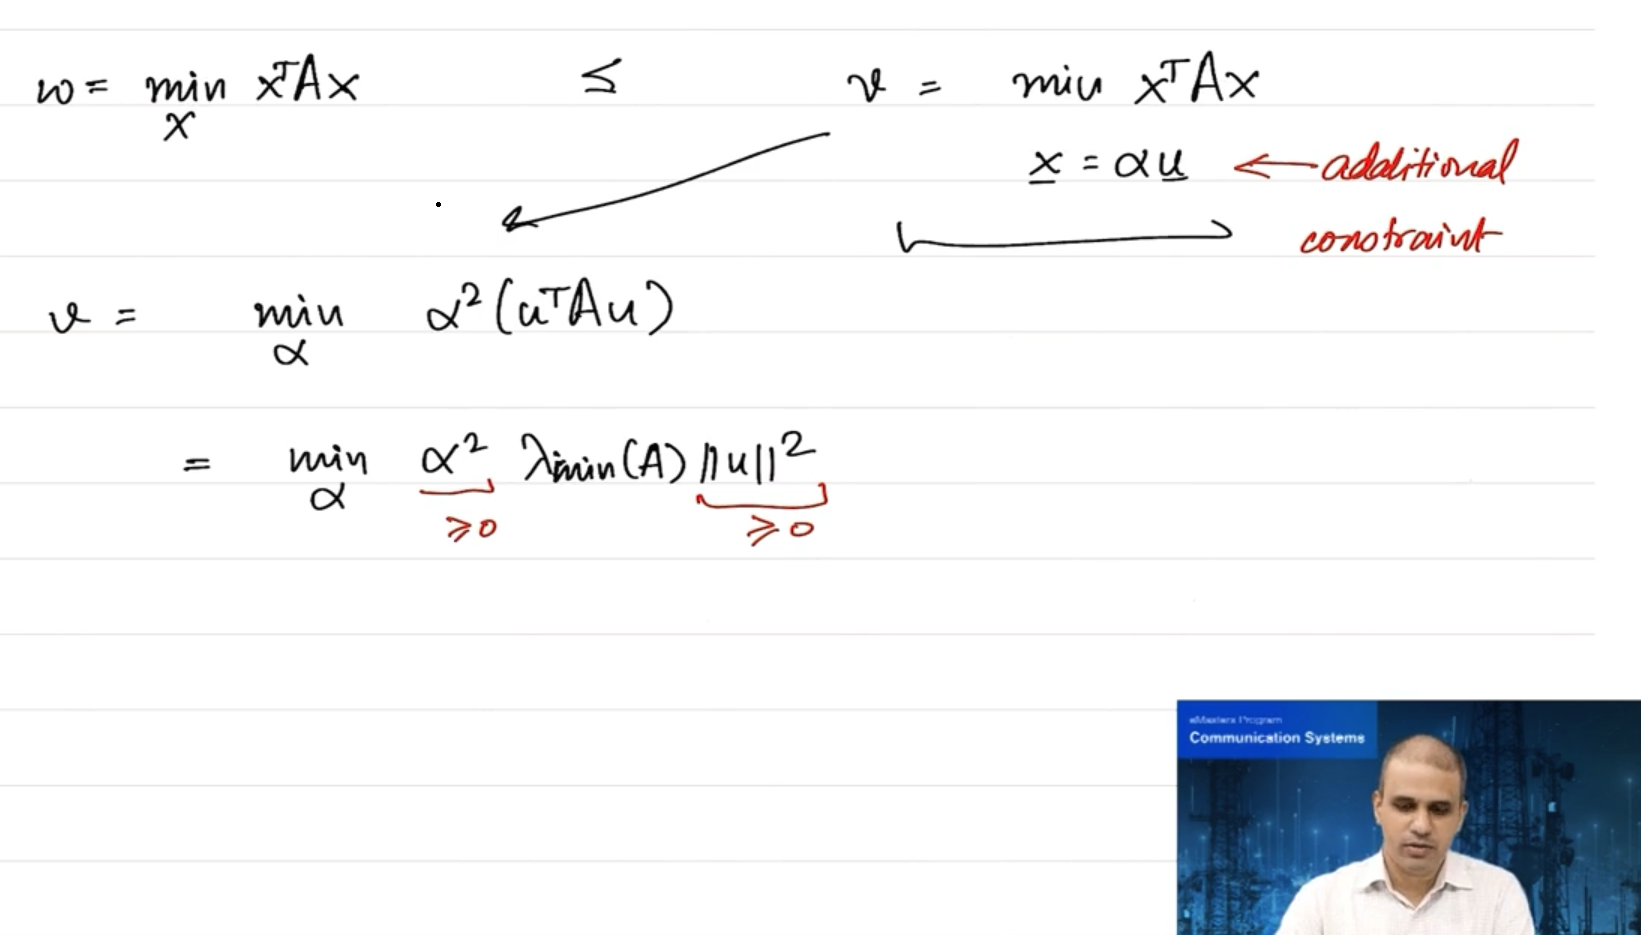 w = min xᵀAx ≤ v = min xᵀAx
x
x = αu ← additional
constraint
v = min α²(uᵀAu)
α
= min α² λmin(A) ||u||²
α
≥0 ≥0
eMasters Program
Communication Systems